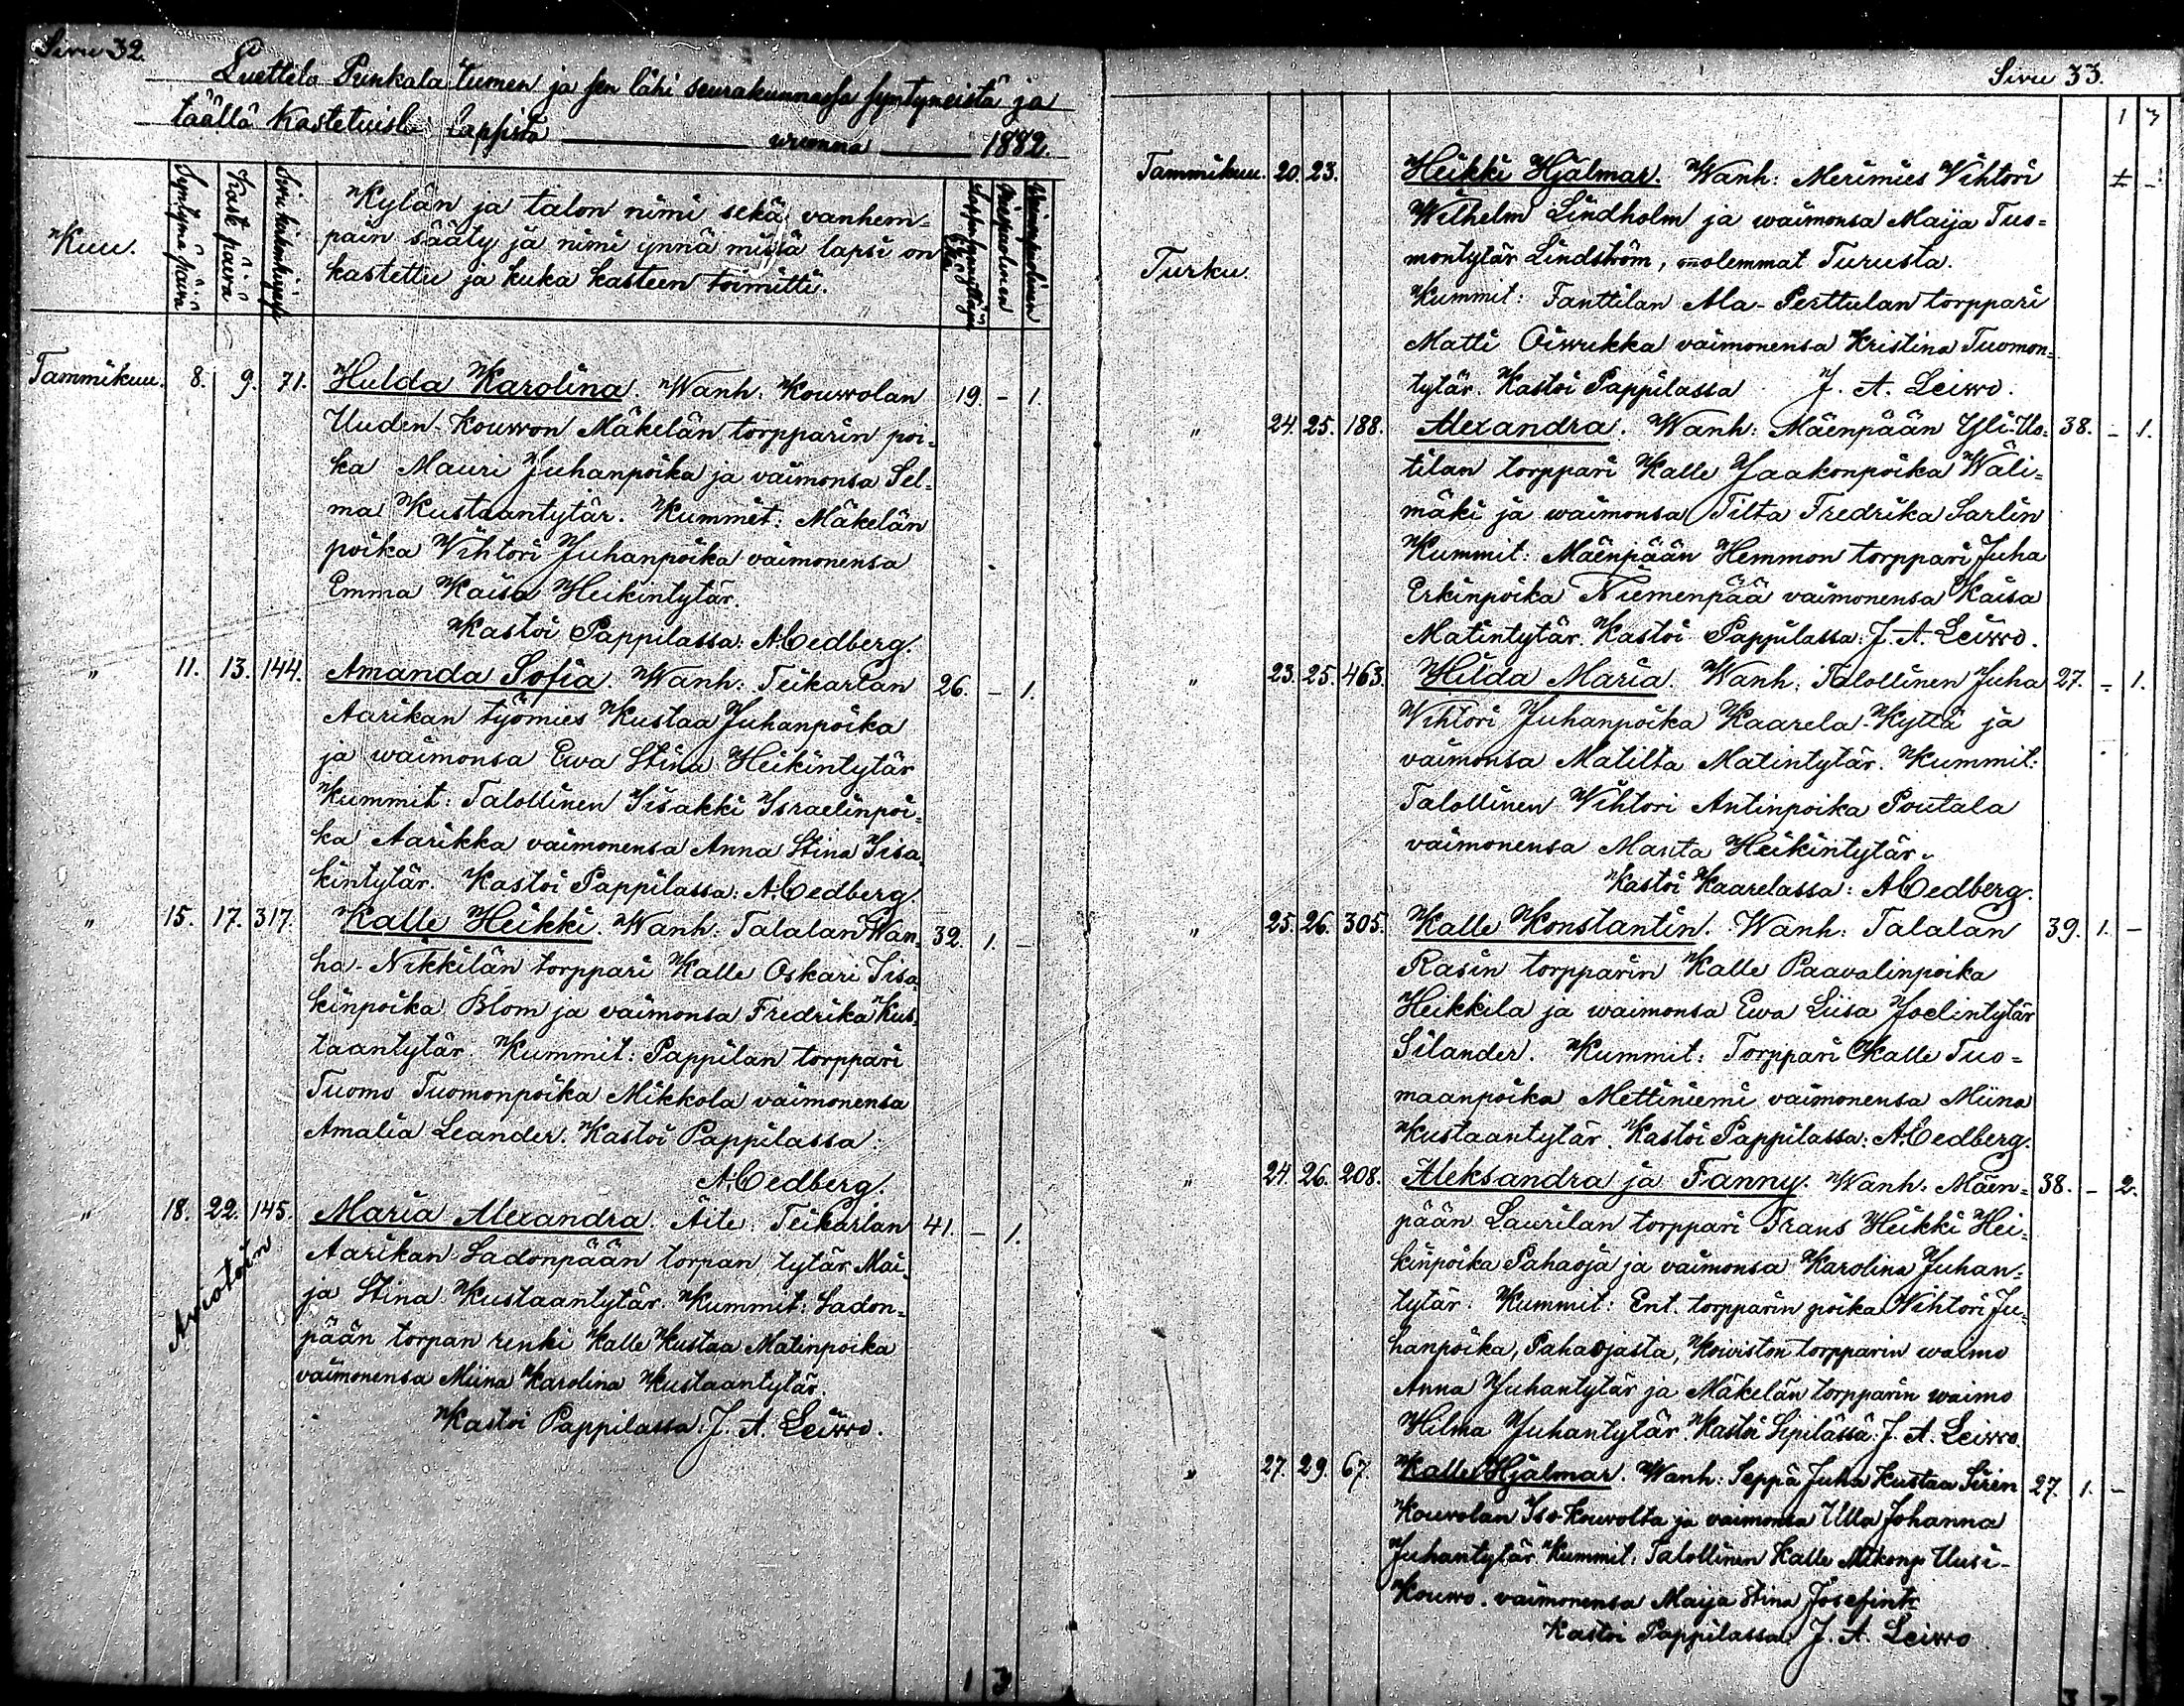 Sivu 32.
Luettelo Punkalaitumen ja sen lähi seurakunnassa syntyneistä ja
täällä kastetuista lapsista vuonna 1882.
Kuu.
Syntymä päivä
Kaste päivä
Kylän ja talon nimi sekä vanhem=
pain sääty ja nimi ynnä missä lapsi on
kastettu ja kuka kasteen toimitti.
Miespuolinen
Vaimonpuolinen
Tammikuu. 8. 9. 71. Hulda Karolina. Wanh: Kouvvolan 19. - 1.
Uuden-Kouvvon Mäkelän torpparin poi=
ka Mauri Juhanpoika ja vaimonsa Sel=
ma Kustaantytär. Kummit: Mäkelän
poika Wihtori Juhanpoika vaimonensa
Emma Kaisa Heikintytär.
Kastoi Pappilassa: A. Cedberg.
" 11. 13. 144. Amanda Sofia. Wanh: Teikarlan 26. - 1.
Aarikan työmies Kustaa Juhanpoika
ja waimonsa Ewa Stina Heikintytär
Kummit: Talollinen Iisakki Israelinpoi=
ka Aarikka vaimonensa Anna Stina Iisa=
kintytär. Kastoi Pappilassa: A. Cedberg.
" 15. 17. 317. Kalle Heikki. Wanh: Talalan Wan= 32. 1. -
ha-Nikkilän torppari Kalle Oskari Iisa=
kinpoika Blom ja vaimonsa Fredrika Kus=
taantytär. Kummit: Pappilan torppari
Tuomo Tuomonpoika Mikkola vaimonensa
Amalia Leander. Kastoi Pappilassa:
A. Cedberg.
" 18. 22. 145. Maria Alexandra. Äite: Teikarlan 41. - 1.
Awiotoin
Aarikan Ladonpään torpan tytär Mai=
ja Stina Kustaantytär. Kummit: Ladon=
pään torpan renki Kalle Kustaa Matinpoika
vaimonensa Miina Karolina Kustaantytär.
Kastoi Pappilassa: J. A. Leivvo.
1 3
Sivu 33.
1 3
Tammikuu. 20. 23. Heikki Hjalmar. Wanh: Merimies Wihtori ± -
Wilhelm Lindholm ja waimonsa Maija Tuo=
Turku. montytär Lindström, molemmat Turusta.
Kummit: Tanttilan Ala-Perttulan torppari
Matti Oivvukka vaimonensa Kristina Tuomon=
tytär. Kastoi Pappilassa J. A. Leivvo.
" 24. 25. 188. Alexandra. Wanh: Mäenpään Yli-Uo= 38. - 1.
tilan torppari Kalle Jaakonpoika Wäli=
mäki ja waimonsa Tilta Fredrika Sarlin
Kummit: Mäenpään Hemmon torppari Juha
Erkinpoika Niemenpää vaimonensa Kaisa
Matintytär. Kastoi Pappilassa: J. A. Leivvo.
" 23. 25. 463. Hilda Maria. Wanh: Talollinen Juha 27. - 1.
Wihtori Juhanpoika Kaarela-Kyttä ja
vaimonsa Matilta Matintytär. Kummit:
Talollinen Wihtori Antinpoika Poutala
vaimonensa Manta Heikintytär.
Kastoi Kaarelassa: A. Cedberg.
" 25. 26. 305. Kalle Konstantin. Wanh: Talalan 39. 1. -
Rasin torpparin Kalle Paavalinpoika
Heikkila ja waimonsa Ewa Liisa Joelintytär
Silander. Kummit: Torppari Kalle Tuo=
maanpoika Mettiniemi vaimonensa Miina
Kustaantytär. Kastoi Pappilassa: A. Cedberg.
" 24. 26. 208. Aleksandra ja Fanny. Wanh: Mäen= 38. - 2.
pään Laurilan torppari Frans Heikki Hei=
kinpoika Pahaoja ja vaimonsa Karolina Juhan=
tytär. Kummit: Ent. torpparin poika Wihtori Ju=
hanpoika, Pahaojasta, Koiviston torpparin waimo
Anna Juhantytär ja Mäkelän torpparin waimo
Hilma Juhantytär. Kastoi Sipilässä: J. A. Leivvo.
" 27. 29. 67. Kalle Hjalmar. Wanh: Seppä Juha Kustaa Siren 27. 1. -
Kouvolan Iso-Kouvolta ja vaimonsa Ulla Johanna
Juhantytär. Kummit: Talollinen Kalle Uusi-
Kouvvo. vaimonensa Maija Stina Josefintr.
Kastoi Pappilassa: J. A. Leivvo